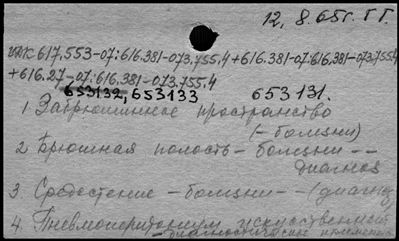 12, 8.65г. ГГ.
УДК 617,553-07:616.381-073.755.4+616.381-07:616.381-073.755.4
+616.27-07:616.381-073.755.4
653132, 653133 653131.
1 Забрюшинное пространство
(-болезни)
2 Брюшная полость - болезни --
диагноз
3 Средостение - болезни -- (диагноз
4. Пневмоперитонеум искусственный
- диагностическое применение